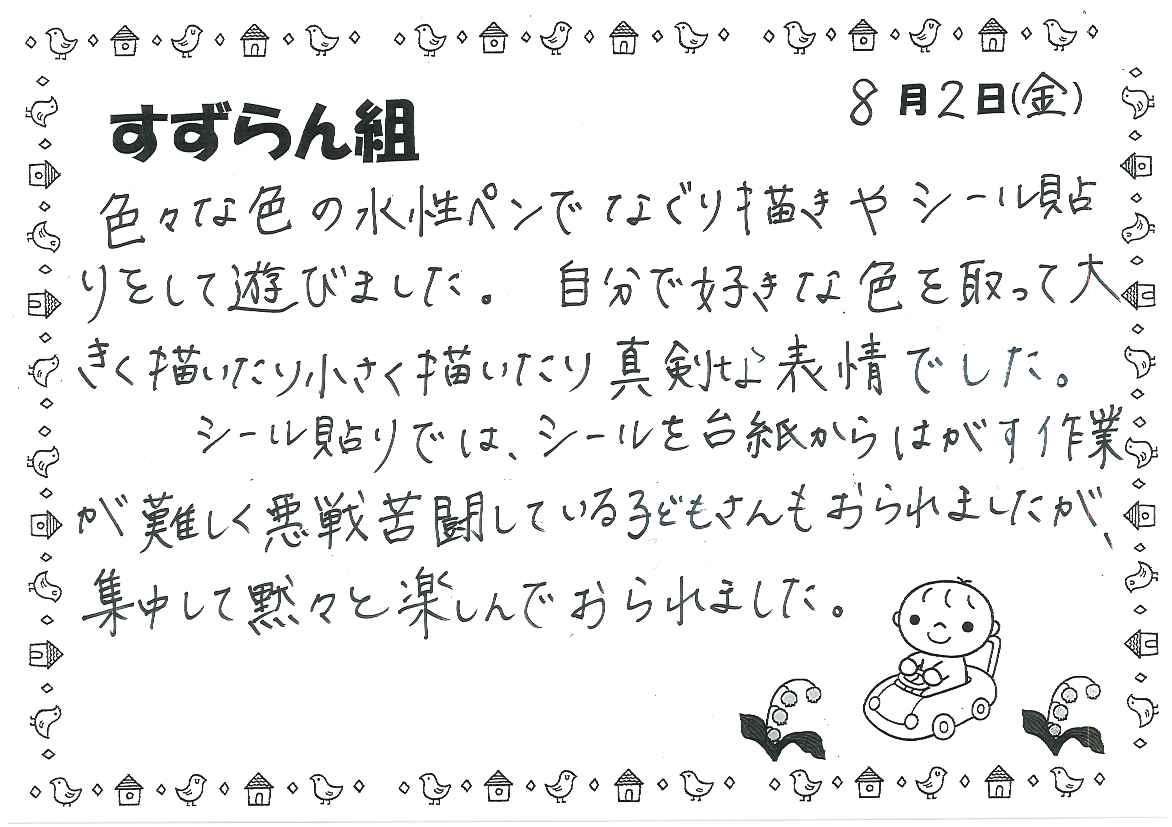 8月2日(金)
すずらん組
色々な色の水性ペンでなぐり描きやシール貼
りをして遊びました。 自分で好きな色を取って大
きく描いたり小さく描いたり真剣な表情でした。
シール貼りでは、シールを台紙からはがす作業
が難しく悪戦苦闘している子どもさんもおられましたが、
集中して黙々と楽しんでおられました。